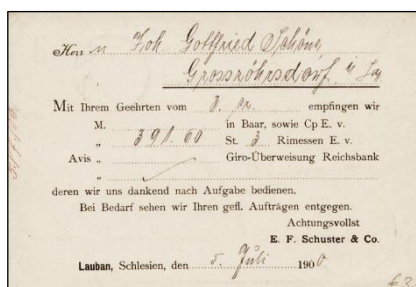 Herrn Joh. Gottfried Schöne
Grossröhrsdorf
Mit Ihrem Geehrten vom empfingen wir
M. in Baar, sowie Cp E. v.
„ 391.60 St. 3 Rimessen E. v.
Avis „ Giro-Überweisung Reichsbank
deren wir uns dankend nach Aufgabe bedienen.
Bei Bedarf sehen wir Ihren gefl. Aufträgen entgegen.
Achtungsvollst
E. F. Schuster & Co.
Lauban, Schlesien, den 5. Juli 1900